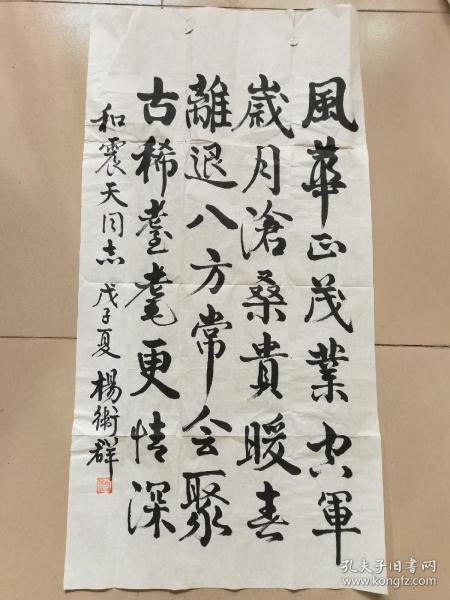 風華正茂業空軍
歲月滄桑貴暖春
離退八方常会聚
古稀耋耄更情深
和震天同志 戊子夏 楊衛群
孔夫子旧书网
www.kongfz.com